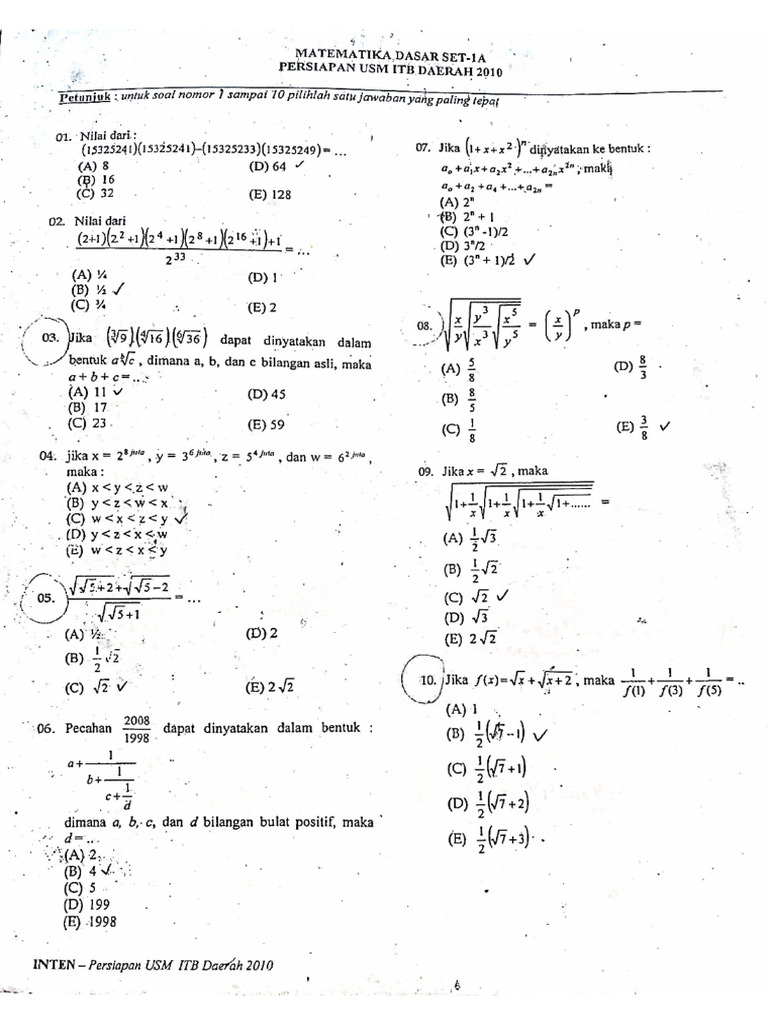 MATEMATIKA DASAR SET-1A
PERSIAPAN USM ITB DAERAH 2010
Petunjuk : untuk soal nomor 1 sampai 10 pilihlah satu jawaban yang paling tepat
01. Nilai dari :
(15325241)(15325241)–(15325233)(15325249)= ...
(A) 8 (D) 64 ✓
(B) 16
(C) 32 (E) 128
02. Nilai dari
(2+1)(2² +1)(2⁴ +1)(2⁸ +1)(2¹⁶ +1)+1
2³³
= ...
(A) ¼ (D) 1
(B) ½ ✓
(C) ¾ (E) 2
03. Jika (∛9)(∜16)(⁶√36) dapat dinyatakan dalam
bentuk a∛c , dimana a, b, dan c bilangan asli, maka
a + b + c = ...
(A) 11 ✓ (D) 45
(B) 17
(C) 23 (E) 59
04. jika x = 2^(8 juta) , y = 3^(6 juta) , z = 5^(4 juta) , dan w = 6^(2 juta) ,
maka :
(A) x < y < z < w
(B) y < z < w < x
(C) w < x < z < y ✓
(D) y < z < x < w
(E) w < z < x < y
05. (√(√5+2)+√(√5–2))/√(√5+1) = ...
(A) ½ (D) 2
(B) 1/2 √2
(C) √2 ✓ (E) 2√2
06. Pecahan 2008/1998 dapat dinyatakan dalam bentuk :
a + 1/(b + 1/(c + 1/d))
dimana a, b, c, dan d bilangan bulat positif, maka
d = ...
(A) 2
(B) 4 ✓
(C) 5
(D) 199
(E) 1998
INTEN – Persiapan USM ITB Daerah 2010
07. Jika (1+x+x²)ⁿ dinyatakan ke bentuk :
a₀ + a₁x + a₂x² +...+ a₂ₙx²ⁿ , maka
a₀ + a₂ + a₄ +...+ a₂ₙ =
(A) 2ⁿ
(B) 2ⁿ + 1
(C) (3ⁿ -1)/2
(D) 3ⁿ/2
(E) (3ⁿ + 1)/2 ✓
08. √(x/y √(y³/x³ √(x⁵/y⁵))) = (x/y)^p , maka p =
(A) 5/8 (D) 8/3
(B) 8/5
(C) 1/8 (E) 3/8 ✓
09. Jika x = √2 , maka
√(1+1/x √(1+1/x √(1+1/x √(1+......)))) =
(A) 1/2 √3
(B) 1/2 √2
(C) √2 ✓
(D) √3
(E) 2√2
10. Jika f(x)=√x + √(x+2) , maka 1/f(1) + 1/f(3) + 1/f(5) = ..
(A) 1
(B) 1/2 (√7 – 1) ✓
(C) 1/2 (√7 + 1)
(D) 1/2 (√7 + 2)
(E) 1/2 (√7 + 3)
6